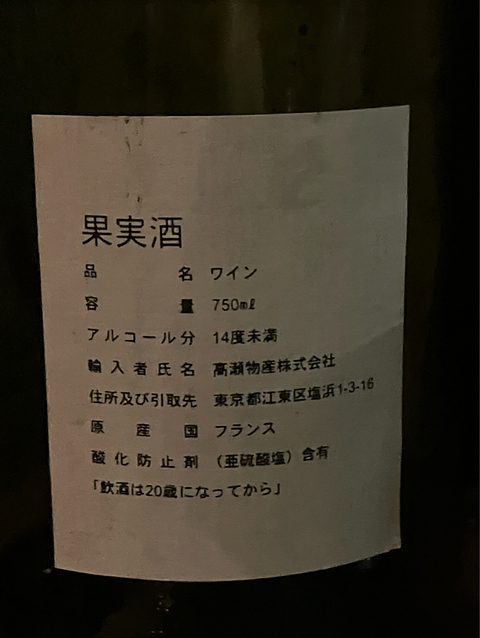 果実酒
品名 ワイン
容量 750mℓ
アルコール分 14度未満
輸入者氏名 高瀬物産株式会社
住所及び引取先 東京都江東区塩浜1-3-16
原産国 フランス
酸化防止剤 （亜硫酸塩）含有
「飲酒は20歳になってから」